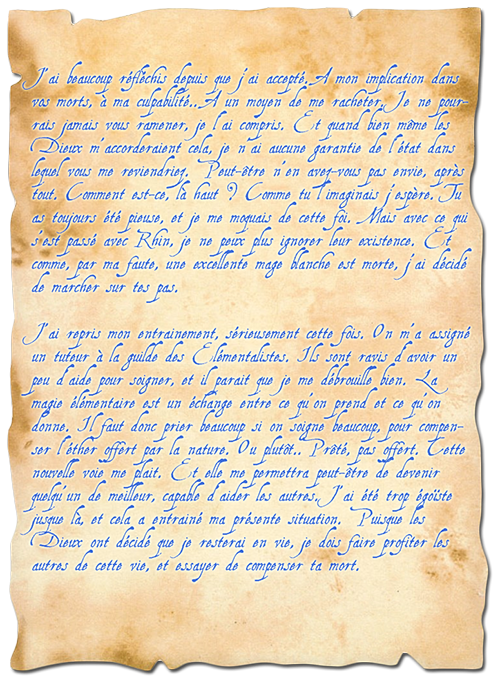 J'ai beaucoup réfléchis depuis que j'ai accepté. A mon implication dans
vos morts, à ma culpabilité.. A un moyen de me racheter. Je ne pour-
rais jamais vous ramener, je l'ai compris. Et quand bien même les
Dieux m'accorderaient cela, je n'ai aucune garantie de l'état dans
lequel vous me reviendriez. Peut-être n'en avez-vous pas envie, après
tout. Comment est-ce, là haut ? Comme tu l'imaginais j'espère. Tu
as toujours été pieuse, et je me moquais de cette foi. Mais avec ce qui
s'est passé avec Rhin, je ne peux plus ignorer leur existence. Et
comme, par ma faute, une excellente mage blanche est morte, j'ai décidé
de marcher sur tes pas.
J'ai repris mon entrainement, sérieusement cette fois. On m'a assigné
un tuteur à la guilde des Elémentalistes. Ils sont ravis d'avoir un
peu d'aide pour soigner, et il parait que je me débrouille bien. La
magie élémentaire est un échange entre ce qu'on prend et ce qu'on
donne. Il faut donc prier beaucoup si on soigne beaucoup, pour compen-
ser l'éther offert par la nature. Ou plutôt.. Prêté, pas offert. Cette
nouvelle voie me plait. Et elle me permettra peut-être de devenir
quelqu'un de meilleur, capable d'aider les autres. J'ai été trop égoïste
jusque là, et cela a entrainé ma présente situation. Puisque les
Dieux ont décidé que je resterai en vie, je dois faire profiter les
autres de cette vie, et essayer de compenser ta mort.